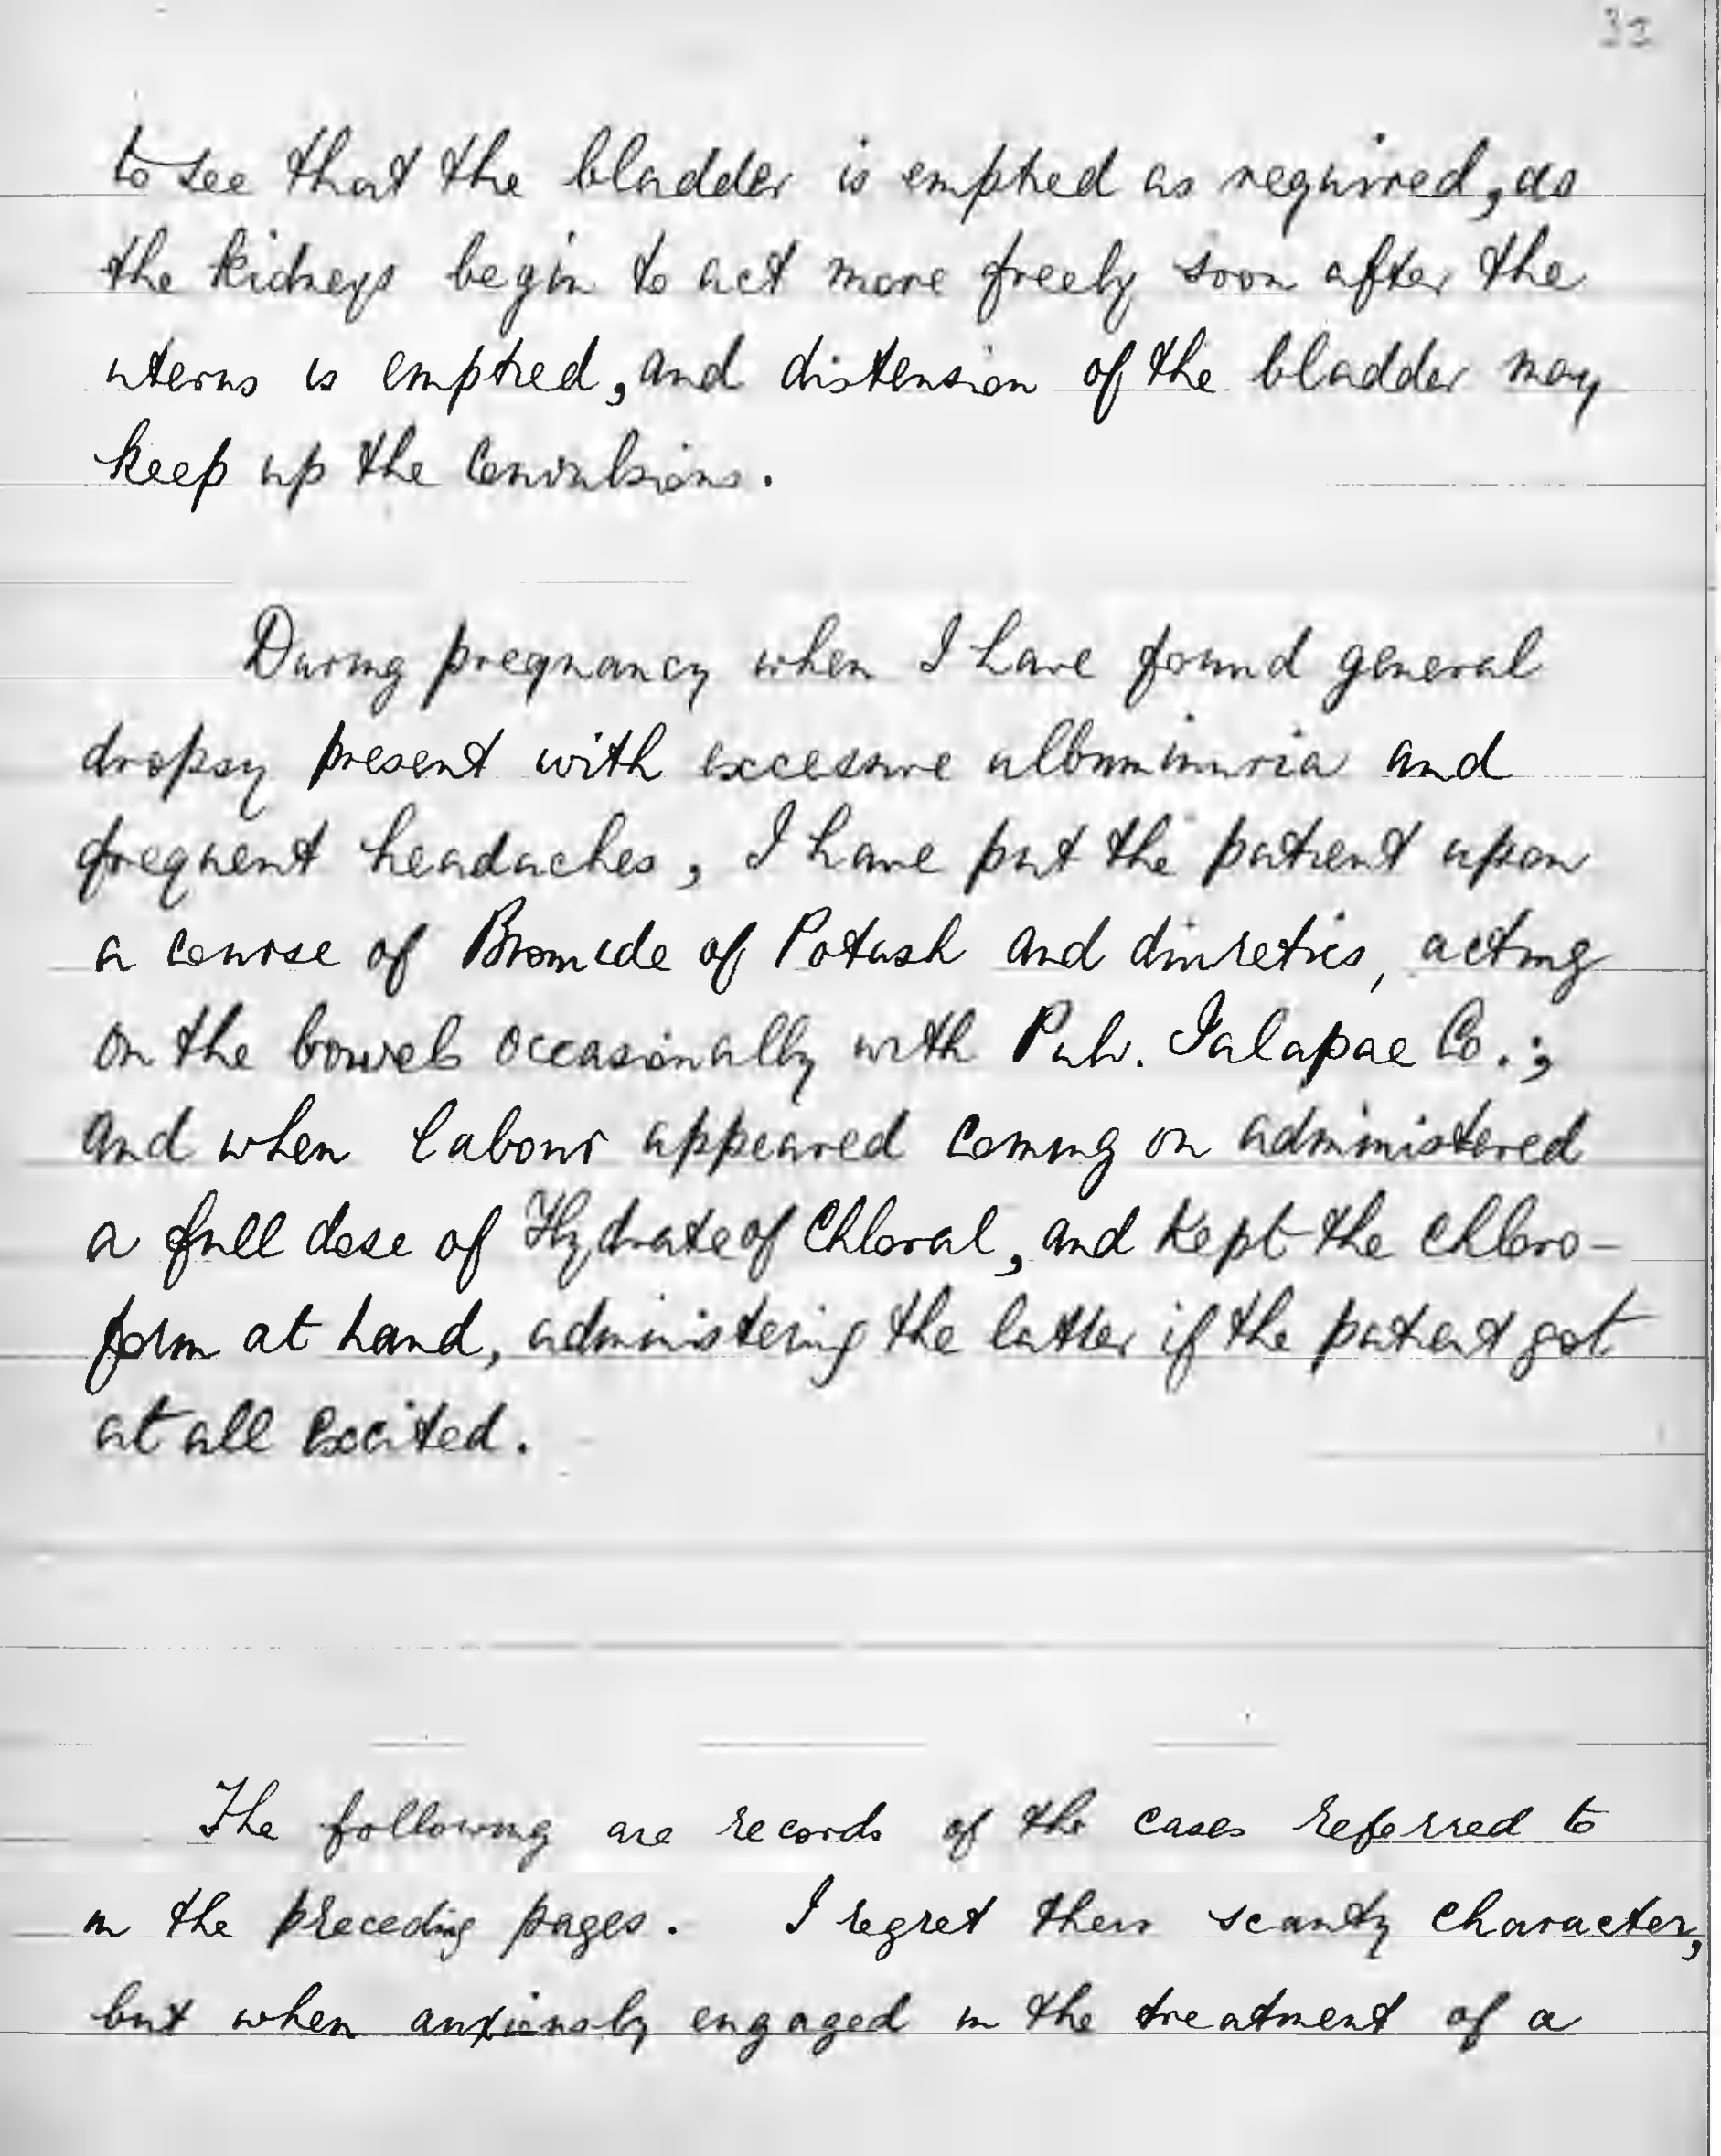 32
to see that the bladder is emptied as required, as
the kidneys begin to act more freely soon after the
uterus is emptied, and distension of the bladder may
keep up the convulsions.
During pregnancy when I have found general
dropsy present with excessive albuminuria and
frequent headaches, I have put the patient upon
a course of Bromide of Potash and diuretics, acting
on the bowels occasionally with Pulv. Jalapae Co.;
and when labour appeared coming on administered
a full dose of Hydrate of Chloral, and kept the chloro-
form at hand, administering the latter if the patient got
at all excited.
The following are records of the cases referred to
in the preceding pages. I regret their scanty character,
but when anxiously engaged in the treatment of a